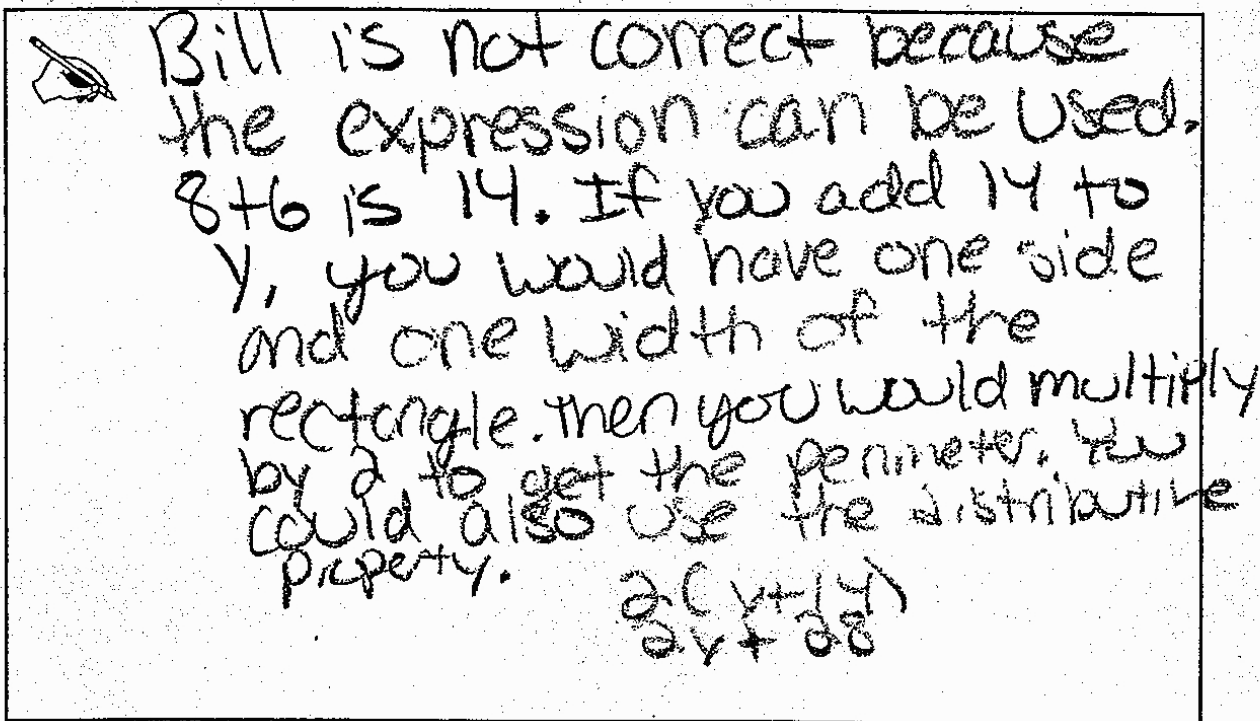 Bill is not correct because
the expression can be used.
8+6 is 14. If you add 14 to
y, you would have one side
and one width of the
rectangle. Then you would multiply
by 2 to get the perimeter. You
could also use the distributive
property.
2(y+14)
2y+28